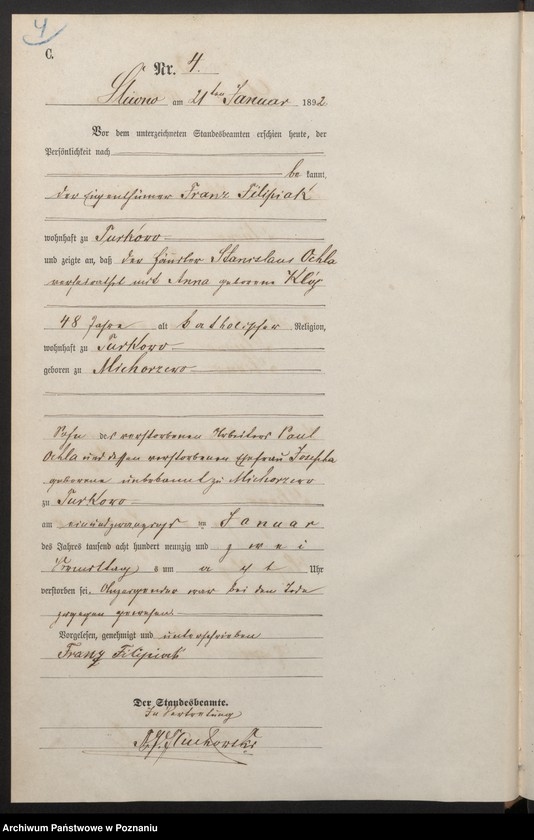 4
C.
Nr. 4.
Sliwno am 21ten Januar 1892
Vor dem unterzeichneten Standesbeamten erschien heute, der
Persönlichkeit nach
be kannt,
der Eigenthümer Franz Filipiak
wohnhaft zu Turkowo
und zeigte an, daß der Händler Stanislaus Ochla
verheirathet mit Anna geborene
48 Jahre alt katholischer Religion,
wohnhaft zu Turkowo
geboren zu Michorzewo
Sohn des verstorbenen Arbeiters Paul
Ochla und dessen verstorbenen Ehefrau Josepha
geborene unbekannt zu Michorzewo
zu Turkowo
am einundzwanzigst en Januar
des Jahres tausend acht hundert neunzig und zwei
Vormittags um acht Uhr
verstorben sei. Anzeigender war bei dem Tode
zugegen gewesen.
Vorgelesen, genehmigt und unterschrieben
Franz Filipiak
Der Standesbeamte.
In Vertretung
Archiwum Państwowe w Poznaniu